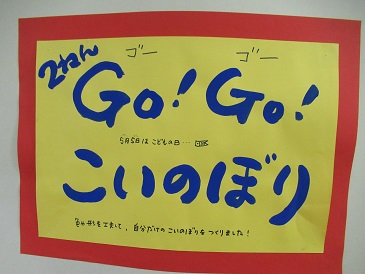 2ねん
ゴー ゴー
Go! Go!
5月5日は こどもの日…
こいのぼり
色や形を工夫して、自分だけの こいのぼりを つくりました!